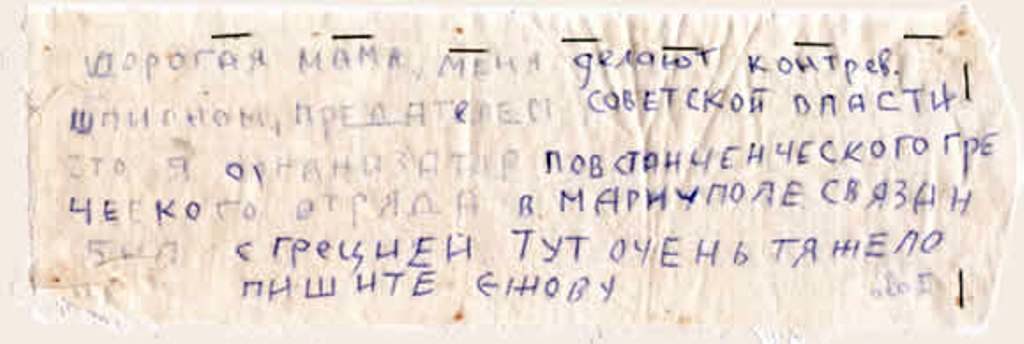 дорогая мама, меня делают контрев.
шпионом, предателем советской власти
это я организатор повстанченческого гре
ческого отряда в Мариуполе связан
был с грецией Тут очень тяжело
пишите Ежову